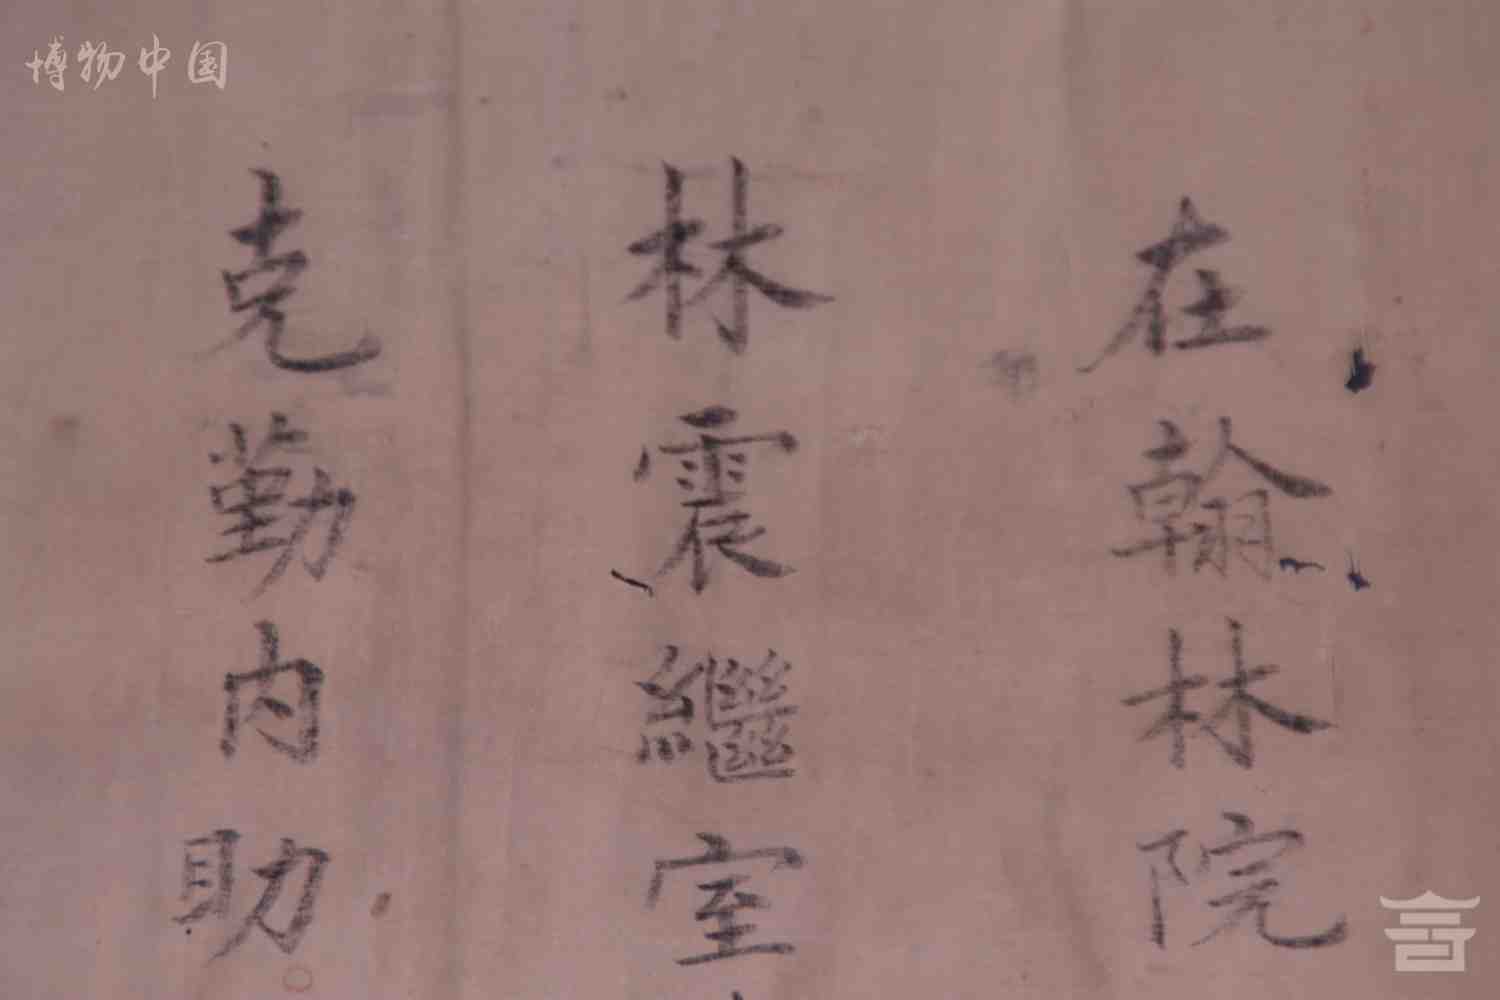 博物中国
在翰林院
林震繼室
克勤内助